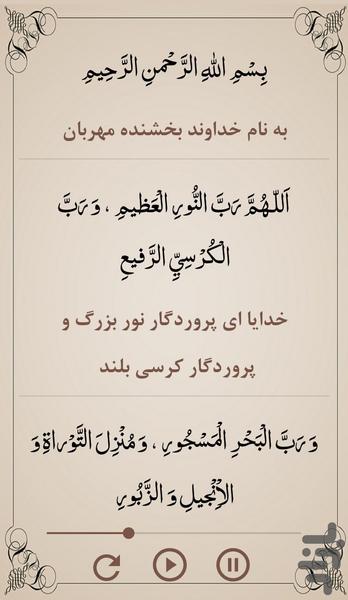 بِسْمِ اللهِ الرَّحْمنِ الرَّحِيمِ
به نام خداوند بخشنده مهربان
اَللّهُمَّ رَبَّ النُّورِ الْعَظيمِ ، وَ رَبَّ
الْكُرْسِيِّ الرَّفيعِ
خدایا ای پروردگار نور بزرگ و
پروردگار کرسی بلند
وَ رَبَّ الْبَحْرِ الْمَسْجُورِ ، وَ مُنْزِلَ التَّوْراةِ وَ
الْاِنْجيلِ وَ الزَّبُورِ
بازار